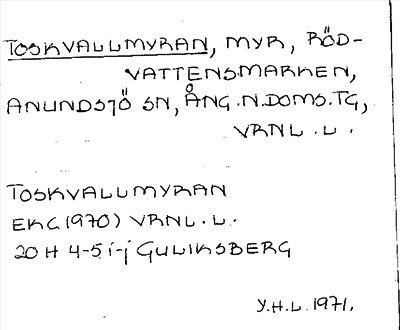 TOSKVALLMYRAN, MYR, RÖD-
VATTENSMARKEN,
ANUNDSJÖ SN, ÅNG.N.DOMS.TG,
VRNL.L.
TOSKVALLMYRAN
EKC(1970) VRNL.L.
20 H 4-5 i-j GULIKSBERG
Y.H.L. 1971.